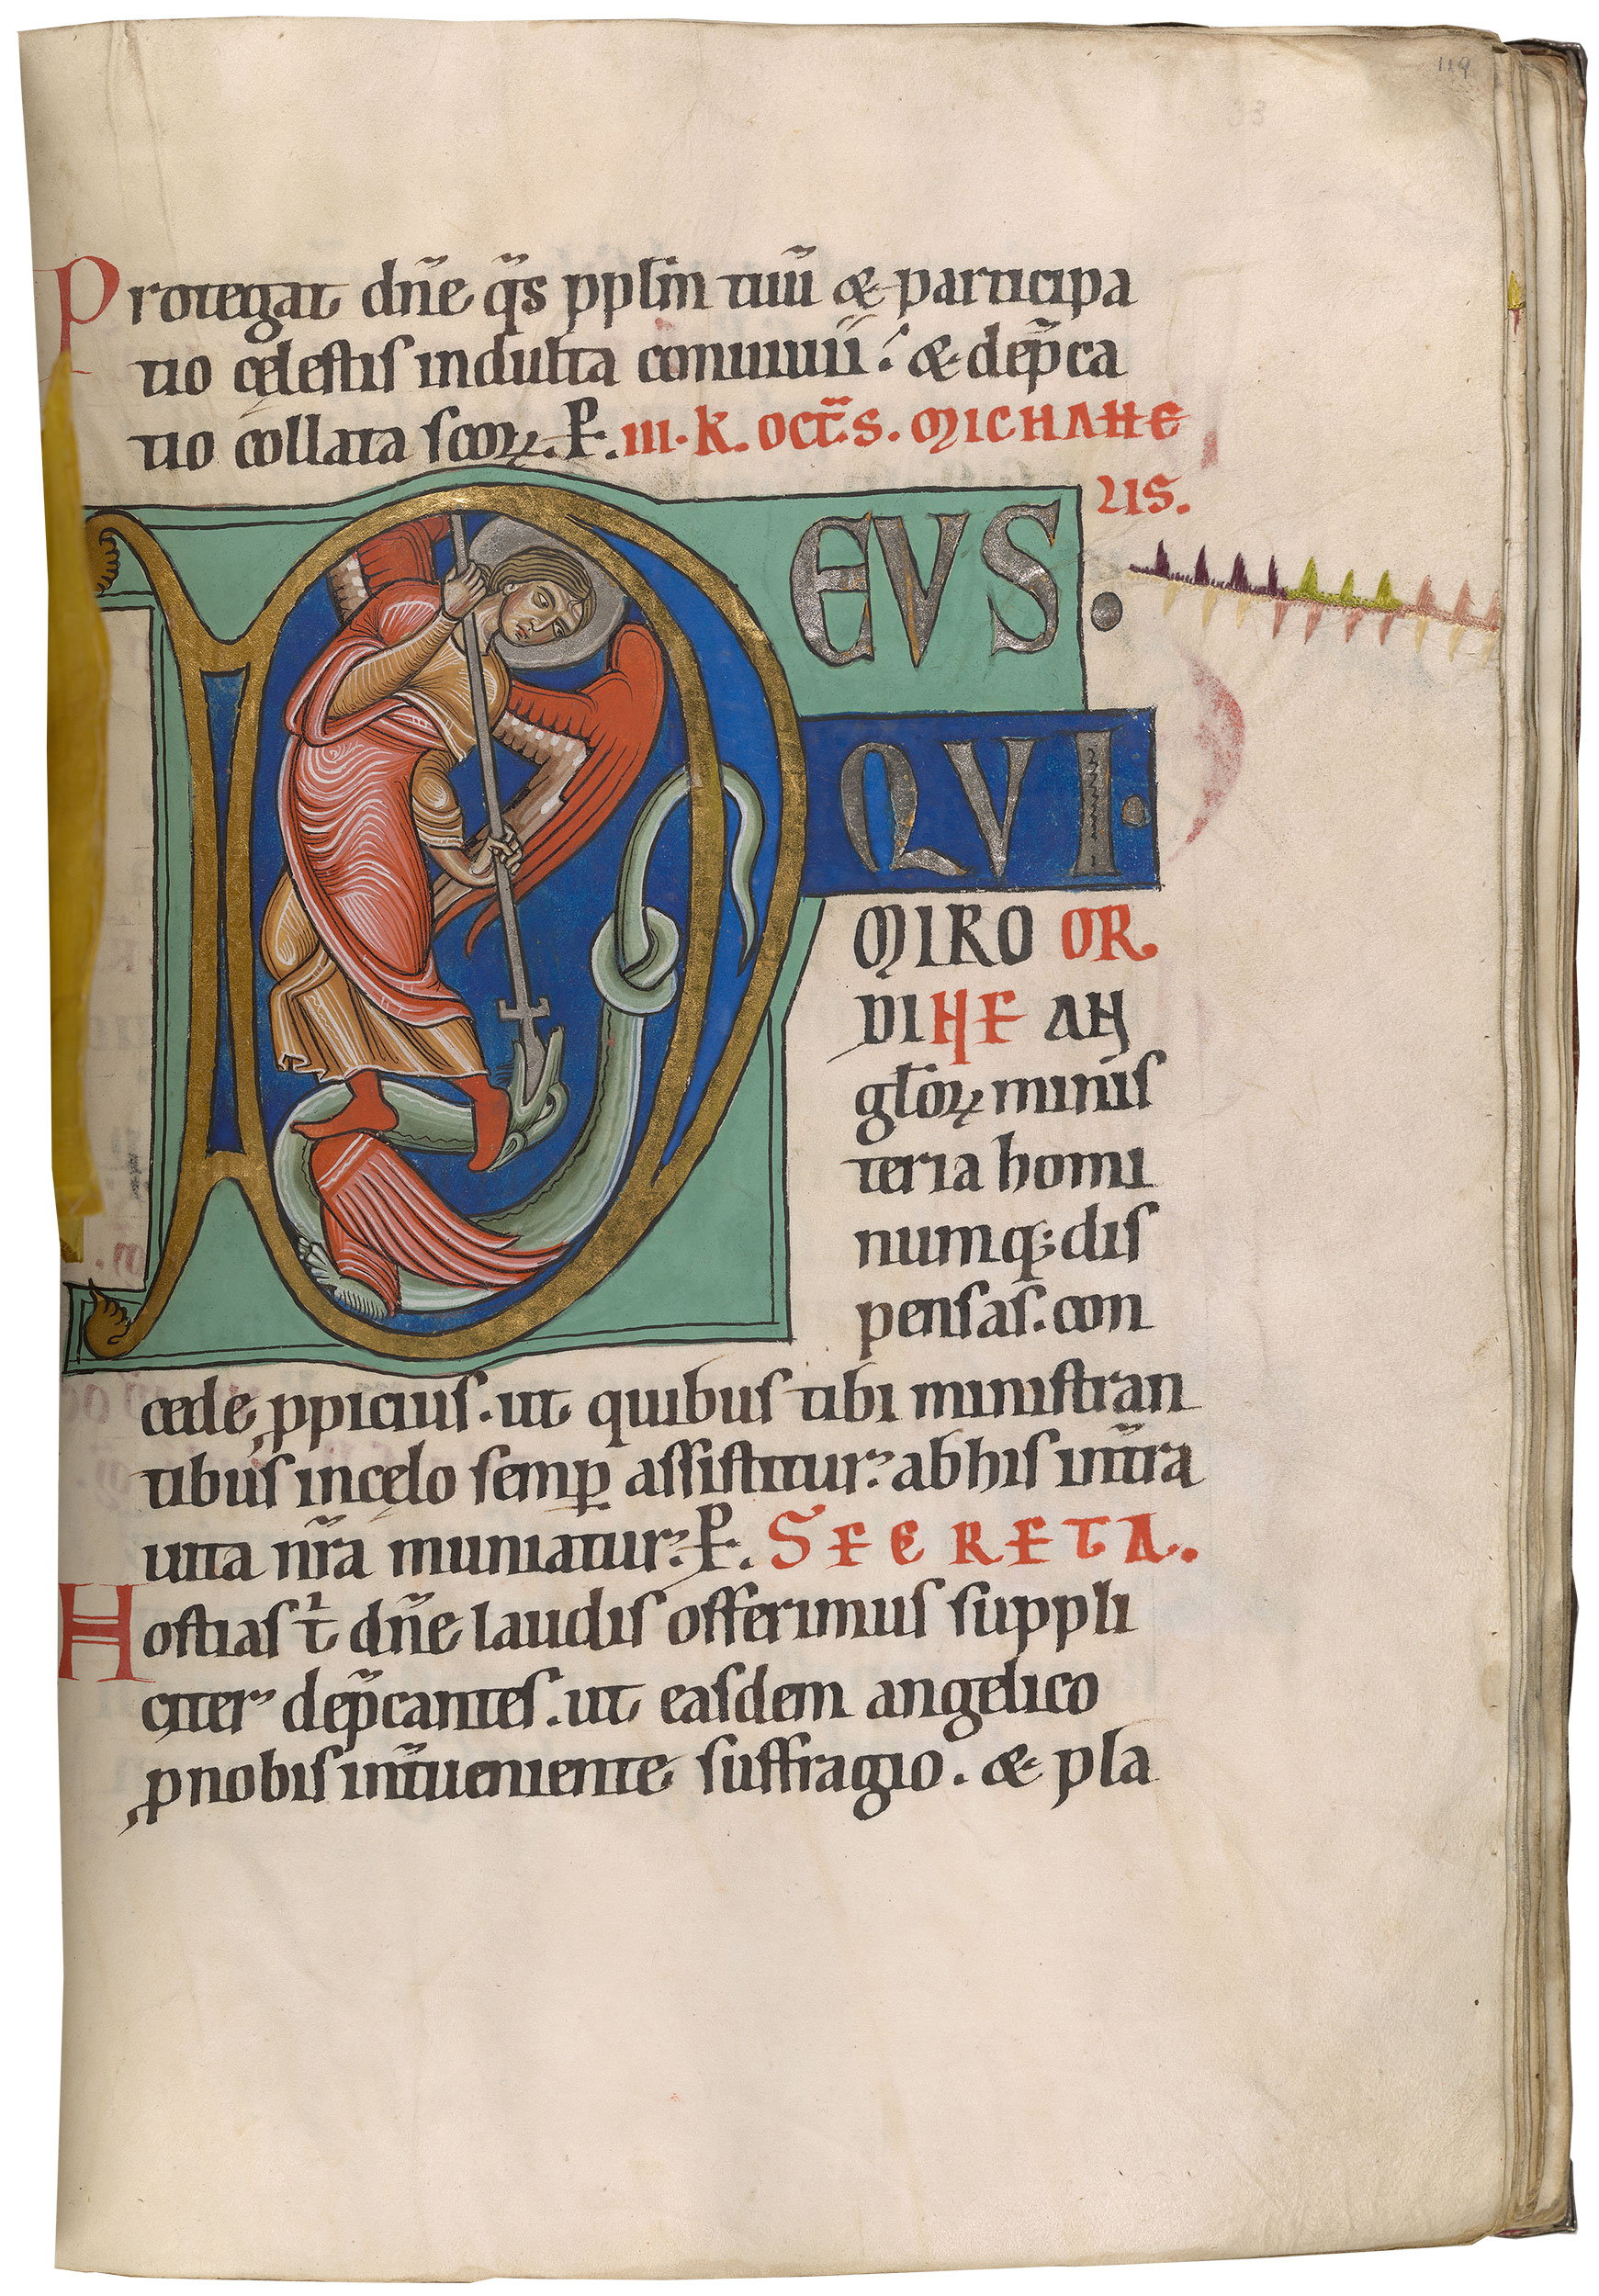 119
33
Protegat dn̄e q̄s pplm̄ tuū & participa
tio cęlestis indulta conuiuii: & dep̄ca
tio collata scōꝝ. P̱. III. K. OCT̄S. MICHAHE
LIS.
DEVS.
QVI.
MIRO OR
DINE AN
gl̄oꝝ minis
teria homi
numq; dis
pensas. con
cede ꝓpicius. ut quibus tibi ministran
tibus incęlo semꝑ assistitur: abhis int̄ra
uita nr̄a muniatur: P̱. SECRETA.
Hostias t̾ dn̄e laudis offerimus suppli
citer dep̄cantes. ut easdem angelico
ꝓnobis int̄ueniente suffragio. & pla